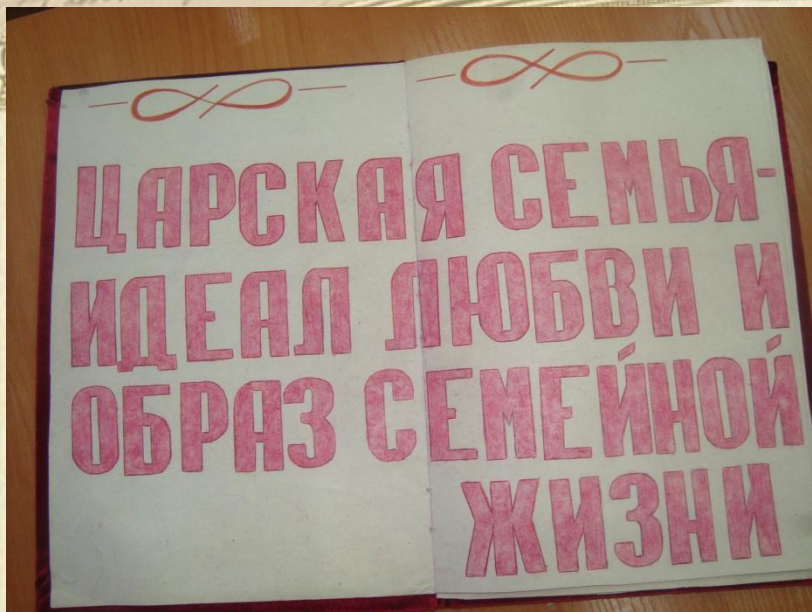 ЦАРСКАЯ СЕМЬЯ-
ИДЕАЛ ЛЮБВИ И
ОБРАЗ СЕМЕЙНОЙ
ЖИЗНИ